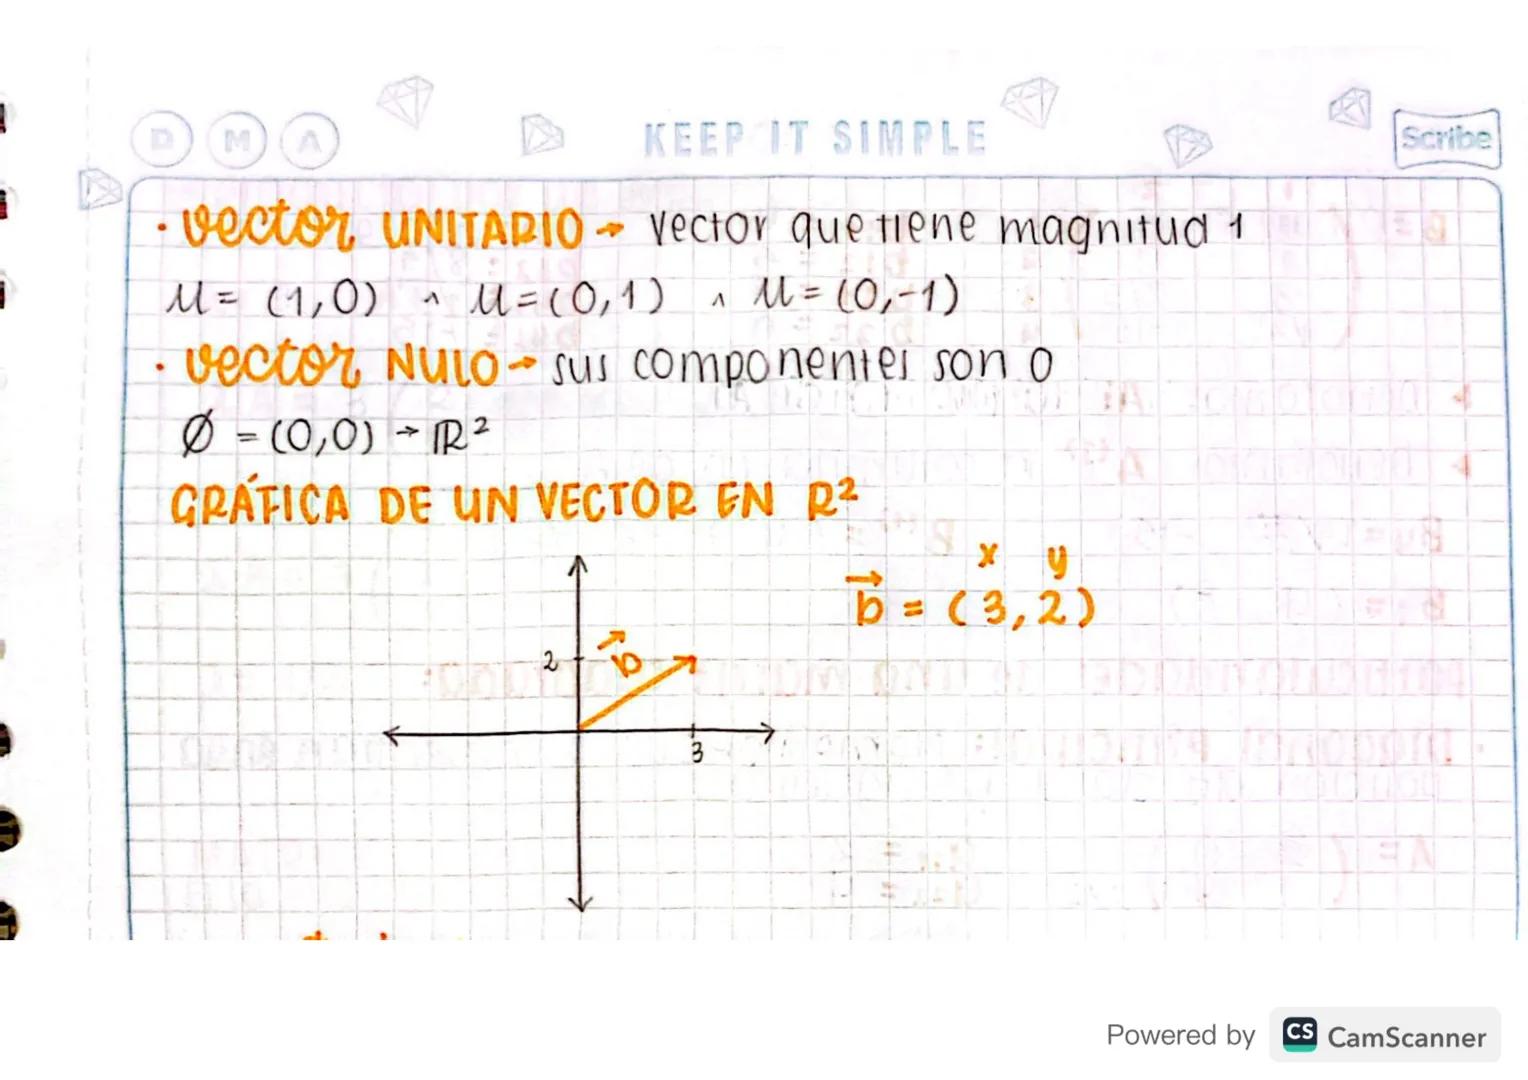 D M A KEEP IT SIMPLE Scribe
· vector UNITARIO → Vector que tiene magnitud 1
μ = (1,0) ^ μ=(0,1) ^ μ = (0,-1)
· vector NULO → sus componentes son 0
Ø = (0,0) → ℝ²
GRÁFICA DE UN VECTOR EN R²
x y
b⃗ = (3,2)
2 b⃗
3
Powered by CS CamScanner